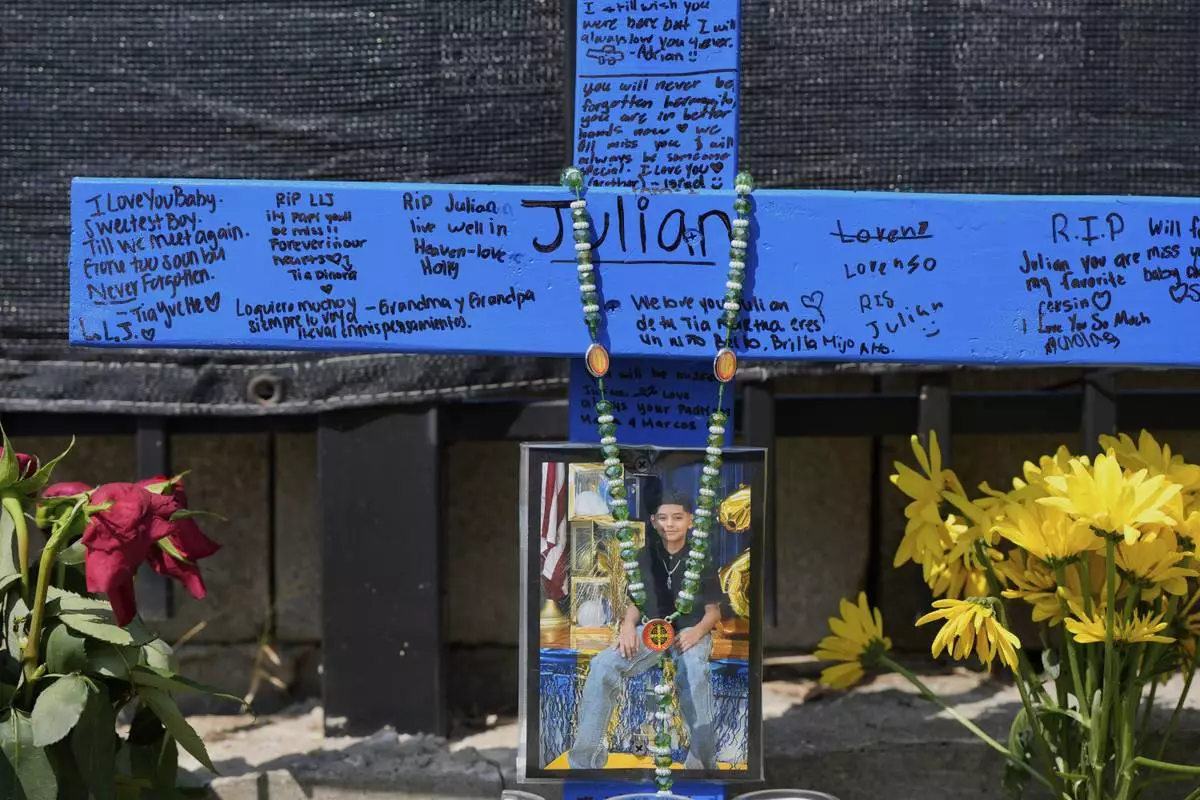 I still wish you
were here but I will
always love you 4ever.
-Adrian
you will never be
forgotten hermanito,
you are in better
hands now we
all miss you I will
always be someone
special. I Love You
(brother) - Israel
I Love You Baby.
Sweetest Boy.
Till we meet again.
Gone too soon but
Never Forgotten.
-Tia Yvette
L.L.J.
RIP LLJ
ily papi youll
be miss!!
Forever in our
hearts
Tia Dinora
RIP Julian
live well in
Heaven-love
Holly
Lo quiero mucho y
siempre lo voy a
llevar en mis pensamientos.
-Grandma y Grandpa
Julian
We love you Julian
de tu Tia Martha eres
un niño Bello, Brilla Mijo
Loren
Lorenso
RIS
Julian
R.I.P
Julian you are miss
my favorite baby
cersin
I Love You So Much
Nicholas
Will
will be missed
Love
always your Padrinos
& Marcos